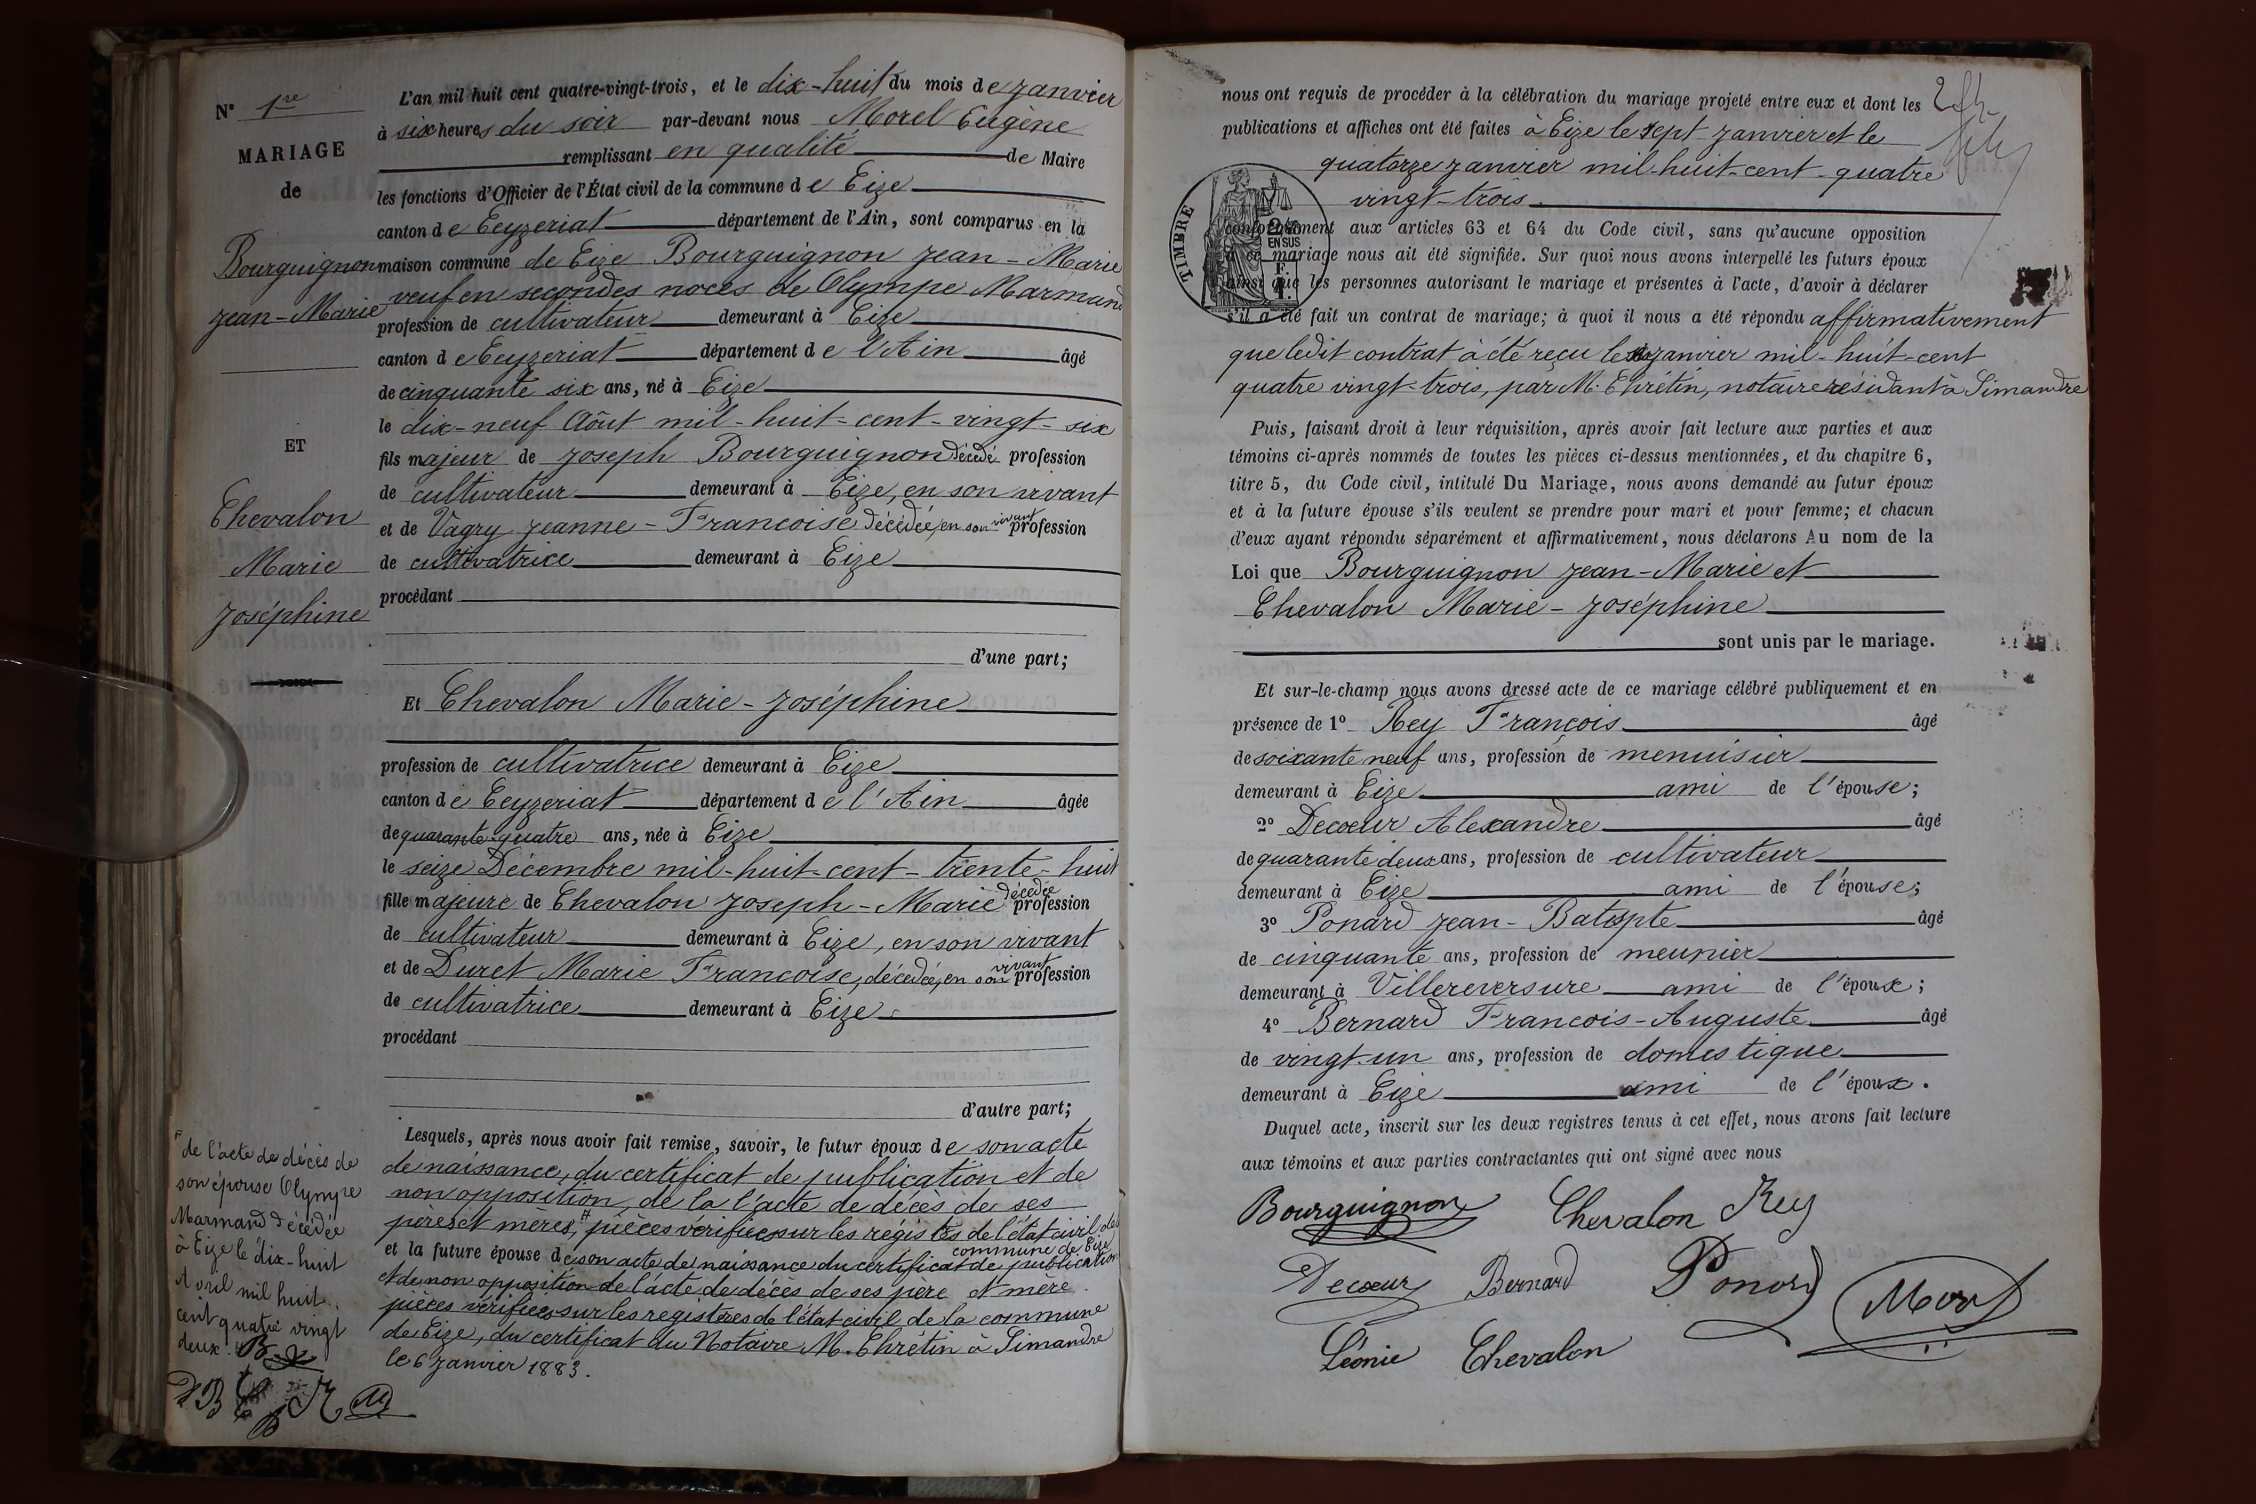 N° 1re
MARIAGE
de
Bourguignon
Jean-Marie
ET
Chevalon
Marie
Joséphine
L'an mil huit cent quatre-vingt-trois, et le dix-huit du mois de Janvier
à six heures du soir par-devant nous Morel Eugène
remplissant en qualité de Maire
les fonctions d'Officier de l'État civil de la commune de Cize
canton de Ceyzeriat département de l'Ain, sont comparus en la
maison commune de Cize Bourguignon Jean-Marie
veuf en secondes noces de Olympe Marmand
profession de cultivateur demeurant à Cize
canton de Ceyzeriat département de l'Ain âgé
de cinquante six ans, né à Cize
le dix-neuf Août mil-huit-cent-vingt-six
fils majeur de Joseph Bourguignon décédé profession
de cultivateur demeurant à Cize, en son vivant
et de Vagry Jeanne-Francoise décédée, en son vivant profession
de cultivatrice demeurant à Cize
procédant
d'une part;
Et Chevalon Marie-Joséphine
profession de cultivatrice demeurant à Cize
canton de Ceyzeriat département de l'Ain âgée
de quarante-quatre ans, née à Cize
le seize Décembre mil-huit-cent-trente-huit
fille majeure de Chevalon Joseph-Marie décédée profession
de cultivateur demeurant à Cize, en son vivant
et de Duret Marie Francoise, décédée, en son vivant profession
de cultivatrice demeurant à Cize
procédant
d'autre part;
Lesquels, après nous avoir fait remise, savoir, le futur époux de son acte
de naissance, du certificat de publication et de
non opposition, de la l'acte de décès de ses
pères et mères, # pièces vérifiées sur les régistres de l'état civil de
commune de Cize
et la future épouse de son acte de naissance du certificat de publication
et de non opposition de l'acte de décès de ses père et mère
pièces vérifiées sur les registres de l'état civil de la commune
de Cize, du certificat du Notaire M. Chrétin à Simandre
le 6 Janvier 1883.
# de l'acte de décès de
son épouse Olympe
Marmand décédée
à Cize le dix-huit
Avril mil huit
cent quatre vingt
deux.
nous ont requis de procéder à la célébration du mariage projeté entre eux et dont les
publications et affiches ont été faites à Cize le sept Janvier et le
quatorze Janvier mil-huit-cent-quatre
vingt-trois
conformément aux articles 63 et 64 du Code civil, sans qu'aucune opposition
à ce mariage nous ait été signifiée. Sur quoi nous avons interpellé les futurs époux
ainsi que les personnes autorisant le mariage et présentes à l'acte, d'avoir à déclarer
s'il a été fait un contrat de mariage; à quoi il nous a été répondu affirmativement
que ledit contrat à été reçu le six Janvier mil-huit-cent
quatre vingt-trois, par M. Chrétin, notaire résidant à Simandre
TIMBRE
2/10
EN SUS
F.
1.
Puis, faisant droit à leur réquisition, après avoir fait lecture aux parties et aux
témoins ci-après nommés de toutes les pièces ci-dessus mentionnées, et du chapitre 6,
titre 5, du Code civil, intitulé Du Mariage, nous avons demandé au futur époux
et à la future épouse s'ils veulent se prendre pour mari et pour femme; et chacun
d'eux ayant répondu séparément et affirmativement, nous déclarons Au nom de la
Loi que Bourguignon Jean-Marie et
Chevalon Marie-Joséphine
sont unis par le mariage.
Et sur-le-champ nous avons dressé acte de ce mariage célébré publiquement et en
présence de 1° Rey François âgé
de soixante neuf ans, profession de menuisier
demeurant à Cize ami de l'épouse;
2° Decoeur Alexandre âgé
de quarante deux ans, profession de cultivateur
demeurant à Cize ami de l'épouse;
3° Ponard Jean-Batispte âgé
de cinquante ans, profession de meunier
demeurant à Villereversure ami de l'époux;
4° Bernard Francois-Auguste âgé
de vingt-un ans, profession de domestique
demeurant à Cize ami de l'époux.
Duquel acte, inscrit sur les deux registres tenus à cet effet, nous avons fait lecture
aux témoins et aux parties contractantes qui ont signé avec nous
Bourguignon Chevalon Rey
Decoeur Bernard Ponard Morel
Léonie Chevalon